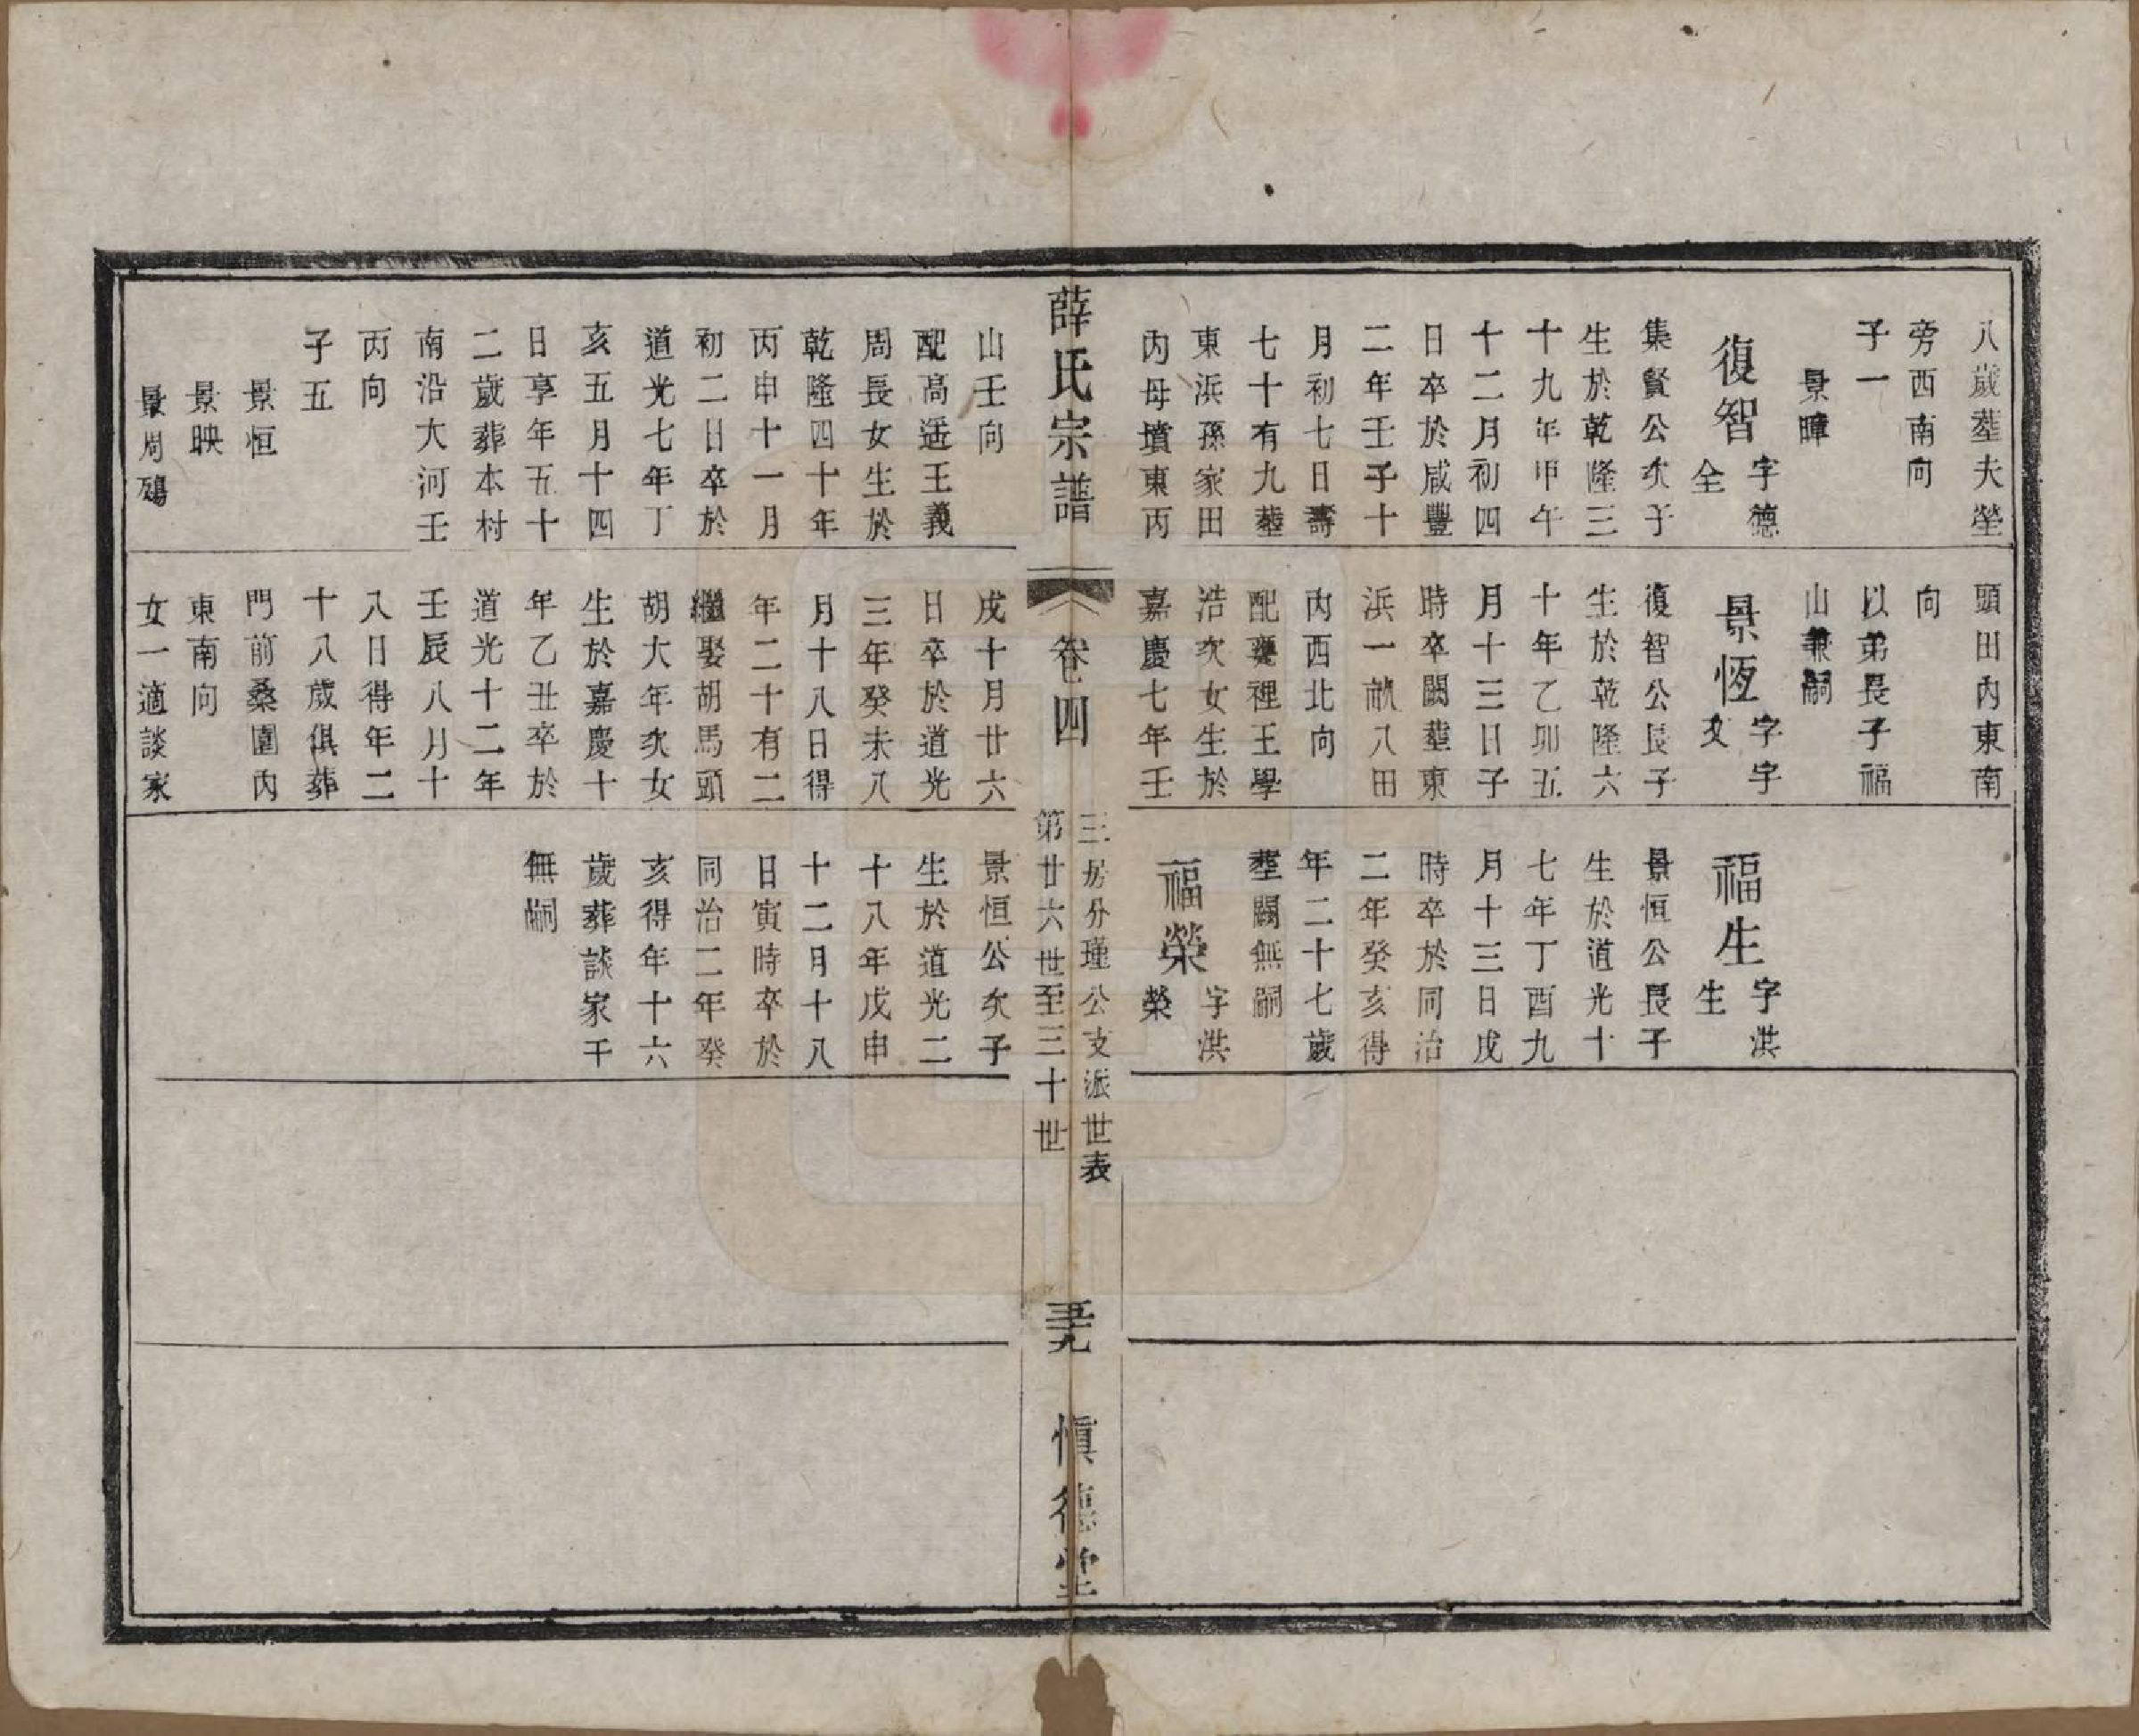 八歲塟夫塋
旁西南向
子一
景暲
復智 字德全
集賢公次子
生於乾隆三
十九年甲午
十二月初四
日卒於咸豐
二年壬子十
月初七日壽
七十有九塟
東浜孫家田
內母墳東丙
頭田內東南
向
以弟長子福
山兼嗣
景恆 字字文
復智公長子
生於乾隆六
十年乙卯五
月十三日子
時卒闕塟東
浜一畝八田
內西北向
配龔裡王學
浩次女生於
嘉慶七年壬
福生 字洪生
景恒公長子
生於道光十
七年丁酉九
月十三日戌
時卒於同治
二年癸亥得
年二十七歲
塟闕無嗣
福榮 字洪榮
薛氏宗譜
卷四
三房分瑾公支派世表
第廿六世至三十世
五十九
慎德堂
山壬向
配高遥王義
周長女生於
乾隆四十年
丙申十一月
初二日卒於
道光七年丁
亥五月十四
日享年五十
二歲葬本村
南沿大河壬
丙向
子五
景恒
景映
景周殤
戌十月廿六
日卒於道光
三年癸未八
月十八日得
年二十有二
繼娶胡馬頭
胡大年次女
生於嘉慶十
年乙丑卒於
道光十二年
壬辰八月十
八日得年二
十八歲俱葬
門前桑園內
東南向
女一適談家
景恒公次子
生於道光二
十八年戊申
十二月十八
日寅時卒於
同治二年癸
亥得年十六
歲葬談家干
無嗣